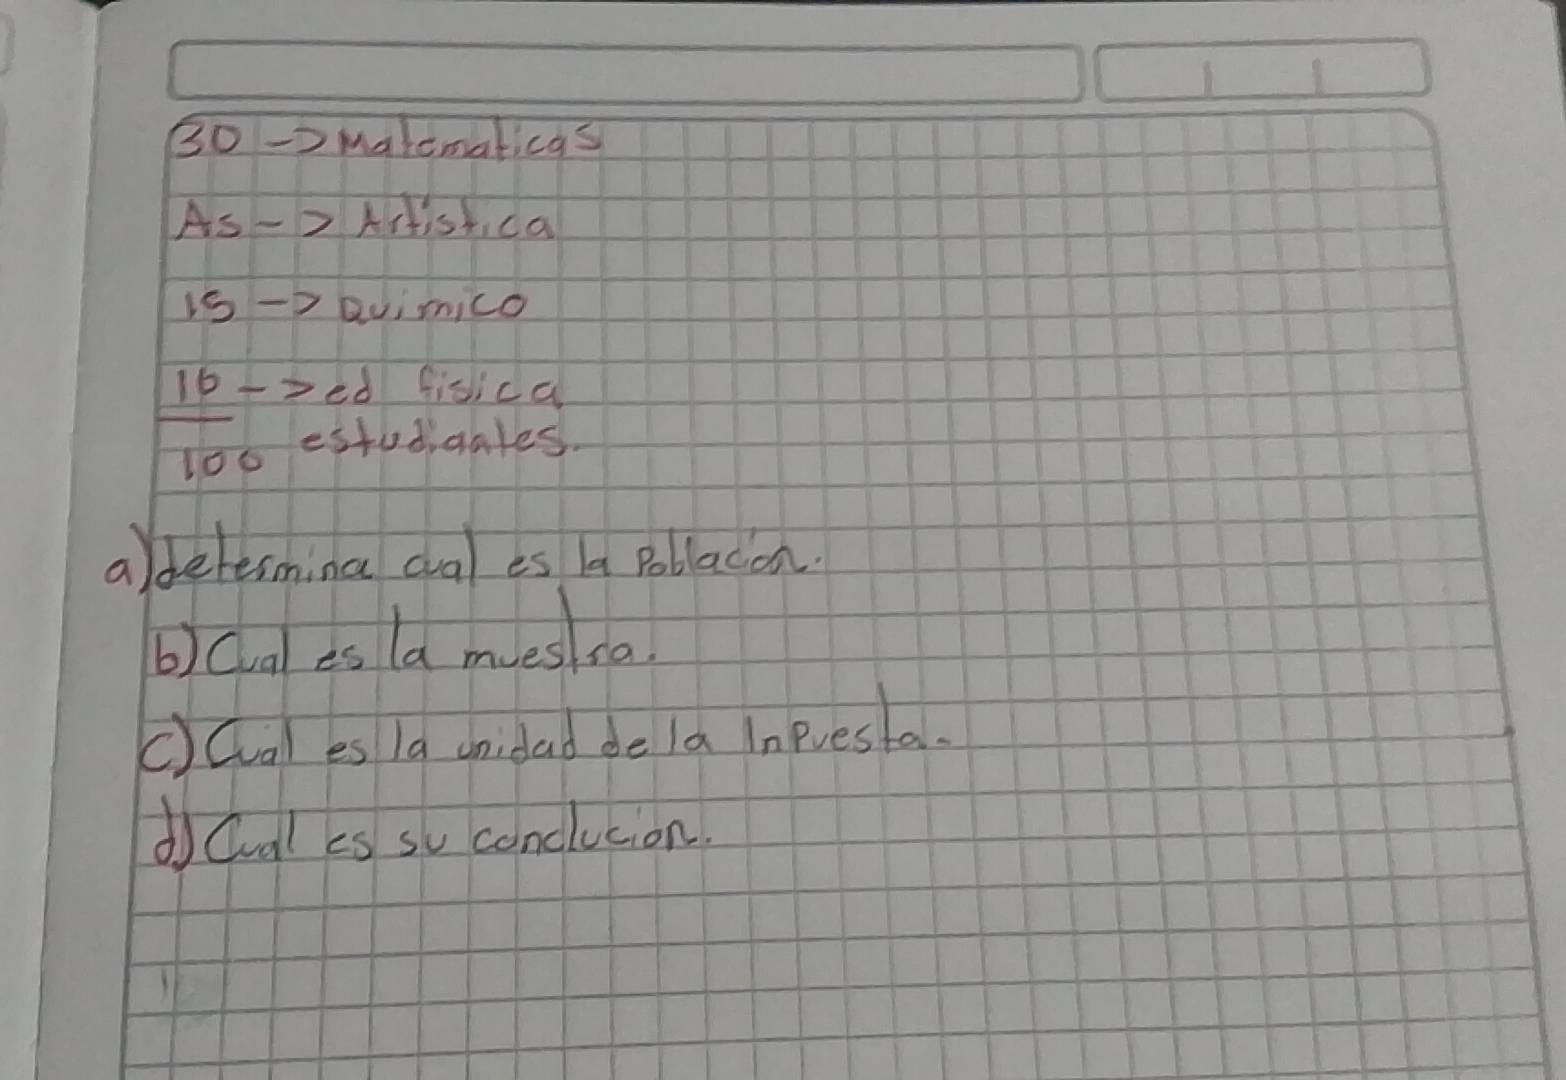 30 -> Matematicas
As -> Artistica
15 -> Quimico
10 -> ed fisica
100 estudiantes.
a) determina cual es la Poblacion.
b) Cual es la muestra.
c) Cual es la unidad de la Inpuesta.
d) Cual es su conclucion.